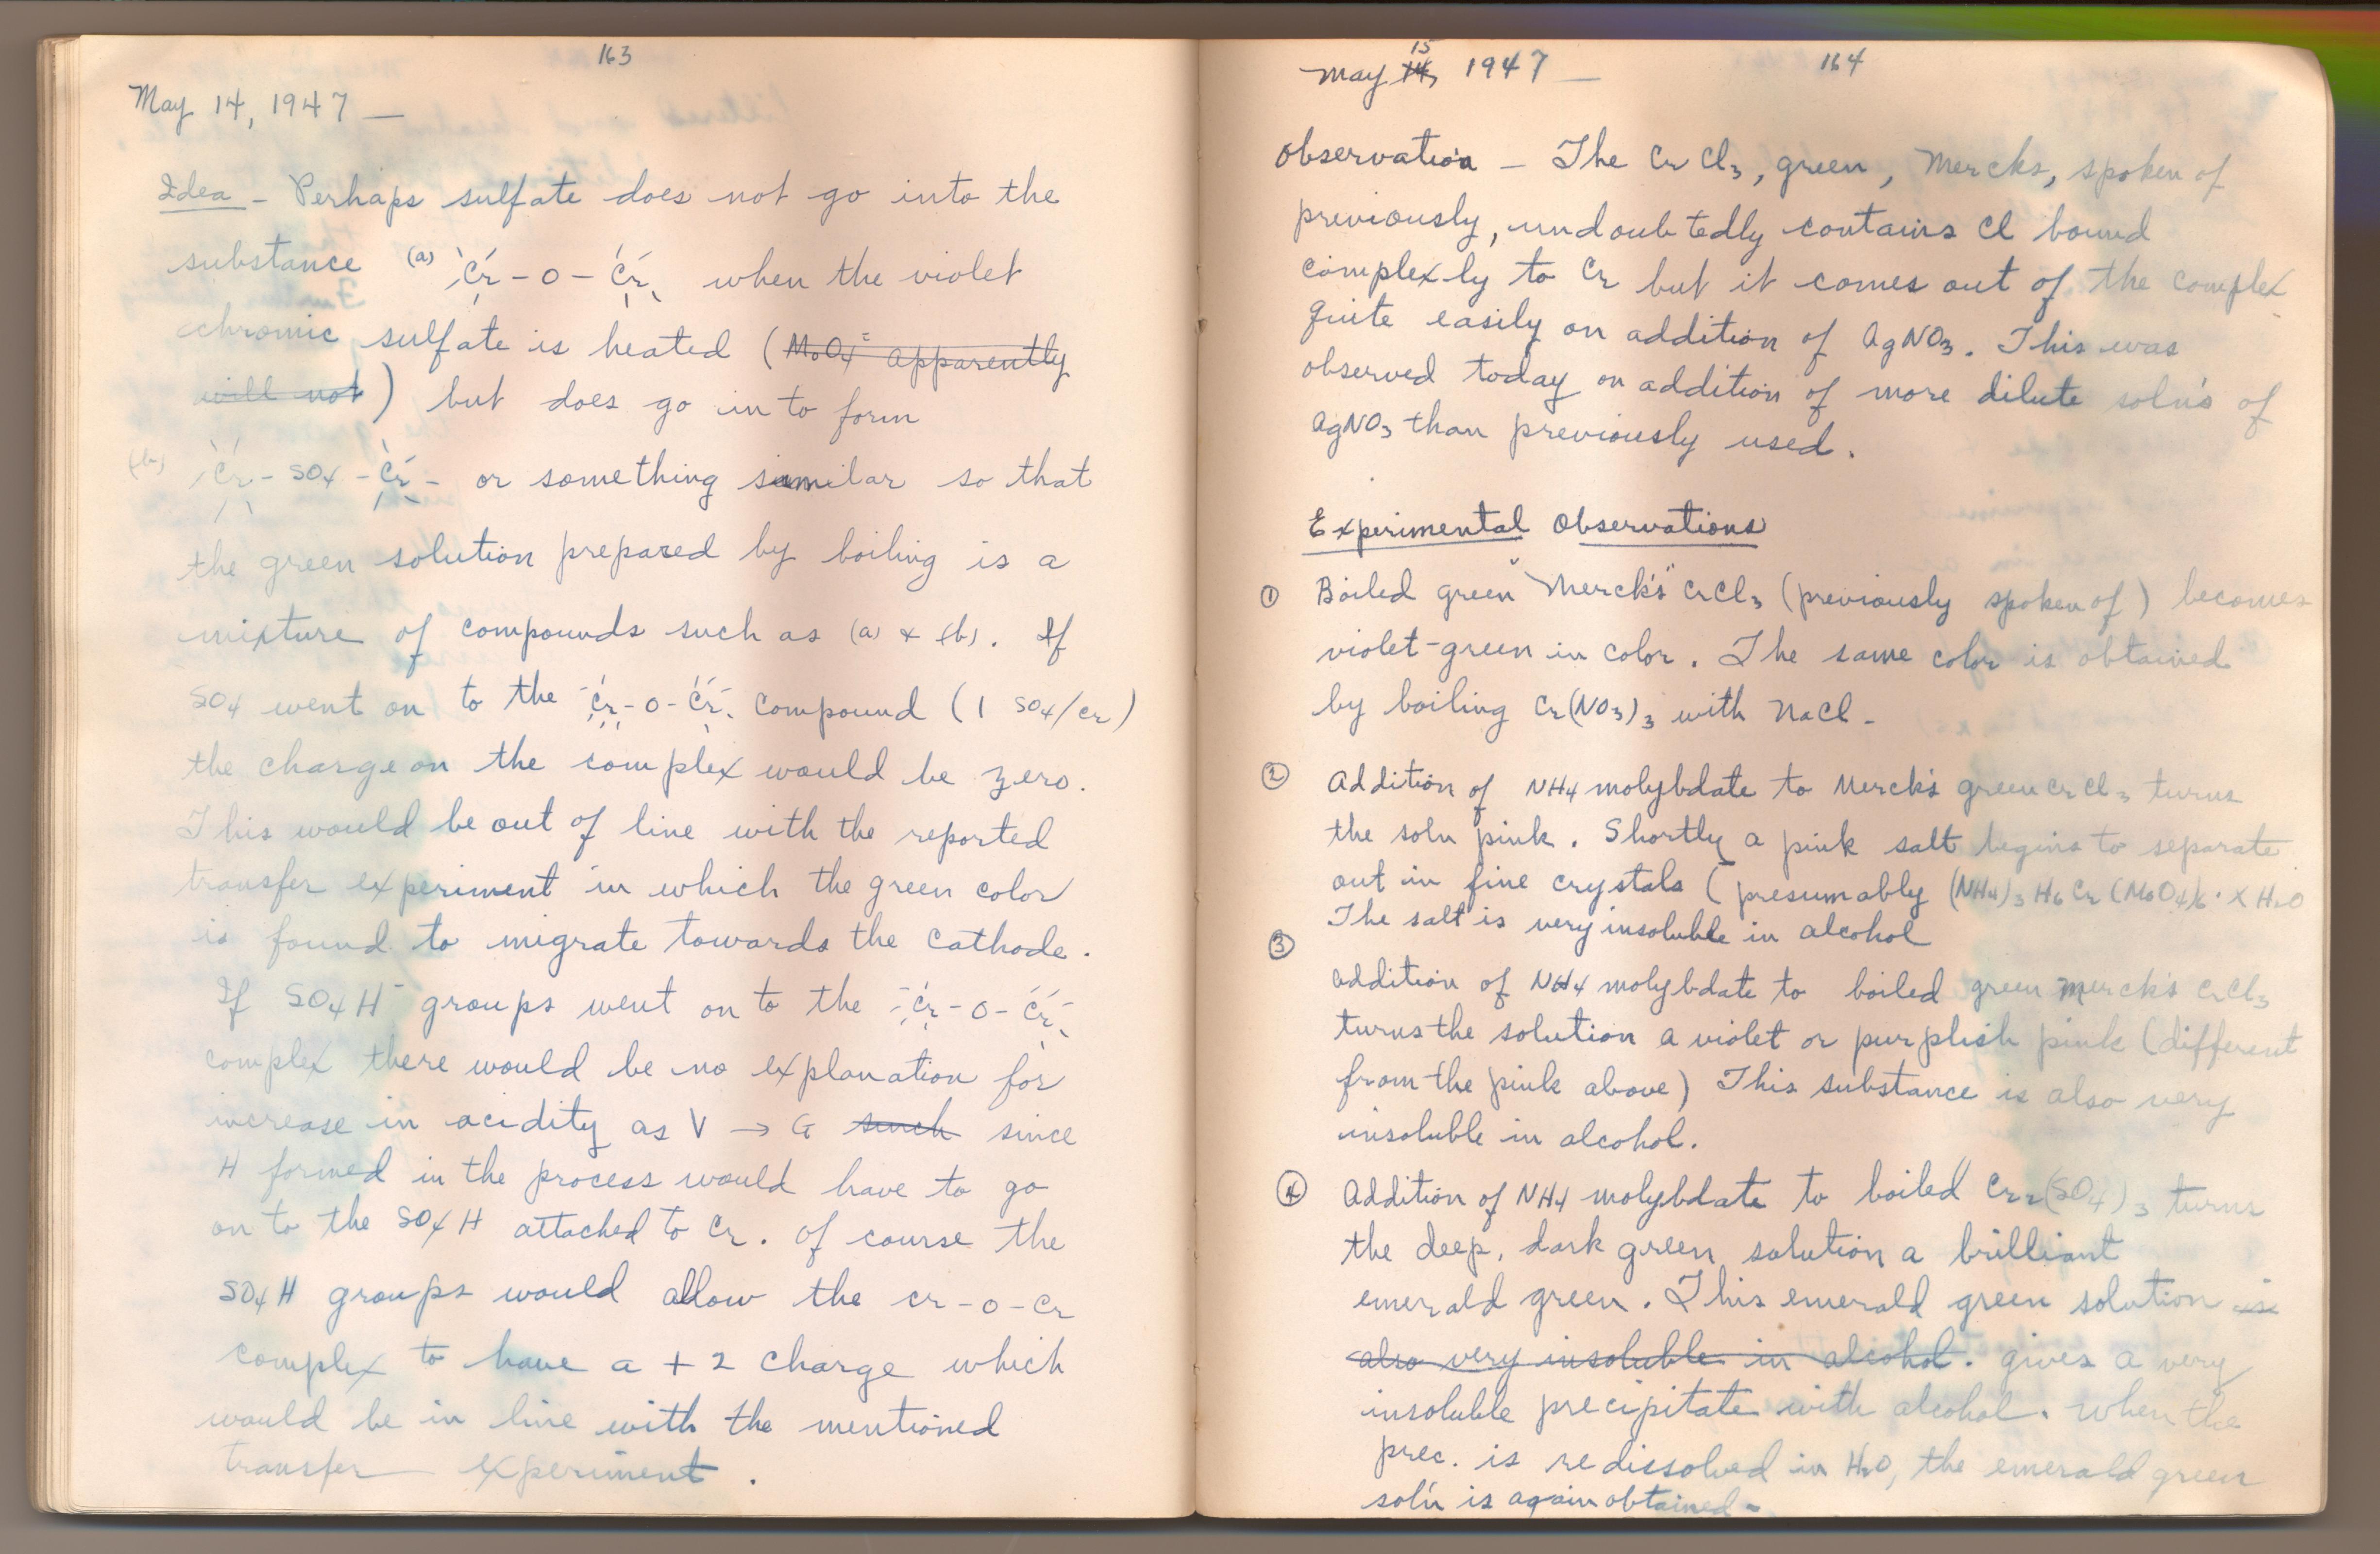 163
May 14, 1947 —
Idea - Perhaps sulfate does not go into the
substance (a) Cr - O - Cr when the violet
chromic sulfate is heated (MoO4= apparently
will not) but does go in to form
(b) Cr - SO4 - Cr - or something similar so that
the green solution prepared by boiling is a
mixture of compounds such as (a) & (b). If
SO4 went on to the -Cr-O-Cr- compound (1 SO4/Cr)
the charge on the complex would be zero.
This would be out of line with the reported
transfer experiment in which the green color
is found to migrate towards the cathode.
If SO4H- groups went on to the -Cr-O-Cr-
complex there would be no explanation for
increase in acidity as V → G such since
H formed in the process would have to go
on to the SO4H attached to Cr. Of course the
SO4H groups would allow the Cr-O-Cr
complex to have a +2 charge which
would be in line with the mentioned
transfer experiment.
164
May 14, 15 1947 —
Observation - The CrCl3, green, Mercks, spoken of
previously, undoubtedly contains Cl bound
complexly to Cr but it comes out of the complex
quite easily on addition of AgNO3. This was
observed today on addition of more dilute soln's of
AgNO3 than previously used.
Experimental Observations
① Boiled green "Merck's" CrCl3 (previously spoken of) becomes
violet-green in color. The same color is obtained
by boiling Cr(NO3)3 with NaCl -
② Addition of NH4 molybdate to Merck's green CrCl3 turns
the soln pink. Shortly a pink salt begins to separate
out in fine crystals (presumably (NH4)3 H6 Cr (MoO4)6 · x H2O
The salt is very insoluble in alcohol
③ Addition of NH4 molybdate to boiled green Merck's CrCl3
turns the solution a violet or purplish pink (different
from the pink above) This substance is also very
insoluble in alcohol.
④ Addition of NH4 molybdate to boiled Cr2(SO4)3 turns
the deep, dark green solution a brilliant
emerald green. This emerald green solution is
also very insoluble in alcohol. gives a very
insoluble precipitate with alcohol. When the
prec. is redissolved in H2O, the emerald green
sol'n is again obtained -